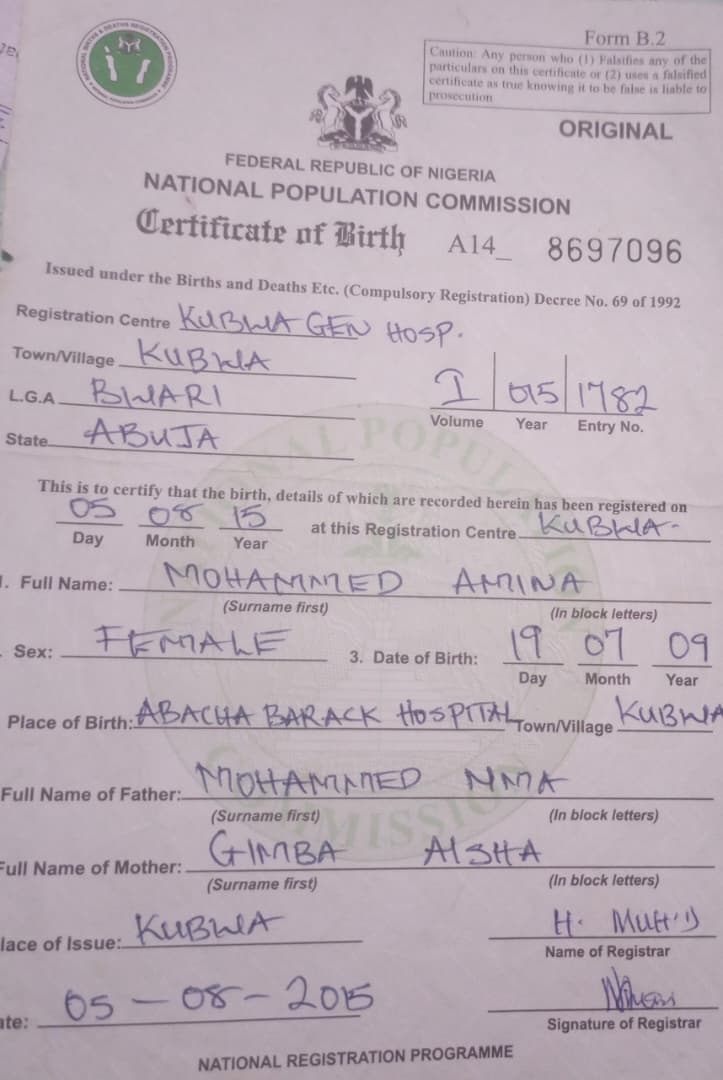 Form B.2
Caution: Any person who (1) Falsifies any of the
particulars on this certificate or (2) uses a falsified
certificate as true knowing it to be false is liable to
prosecution
ORIGINAL
FEDERAL REPUBLIC OF NIGERIA
NATIONAL POPULATION COMMISSION
Certificate of Birth A14_ 8697096
Issued under the Births and Deaths Etc. (Compulsory Registration) Decree No. 69 of 1992
Registration Centre KUBWA GEN HOSP.
Town/Village KUBWA
L.G.A BWARI
I 015 1782
Volume Year Entry No.
State ABUJA
This is to certify that the birth, details of which are recorded herein has been registered on
05 08 15 at this Registration Centre KUBWA-
Day Month Year
1. Full Name: MOHAMMED AMINA
(Surname first) (In block letters)
Sex: FEMALE 3. Date of Birth: 19 07 09
Day Month Year
Place of Birth: ABACHA BARACK HOSPITAL Town/Village KUBWA
Full Name of Father: MOHAMMED NMA
(Surname first) (In block letters)
Full Name of Mother: GIMBA AISHA
(Surname first) (In block letters)
lace of Issue: KUBWA H. MUH'D
Name of Registrar
ate: 05-08-2015
Signature of Registrar
NATIONAL REGISTRATION PROGRAMME